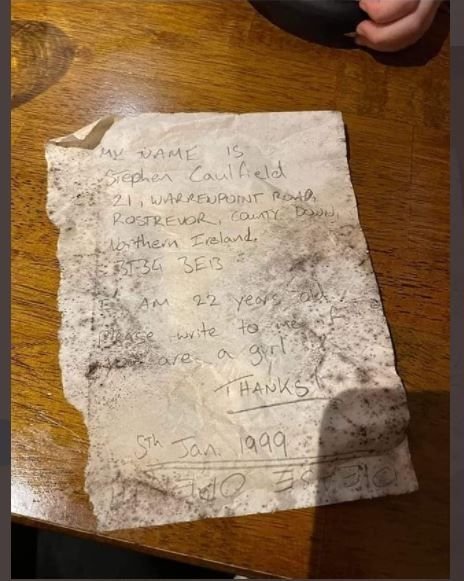 MY NAME IS
Stephen Caulfield
21, WARRENPOINT ROAD,
ROSTREVOR, COUNTY DOWN,
Northern Ireland.
BT34 3EB
I AM 22 years old.
Please write to me if
you are a girl
THANKS!
5th Jan. 1999